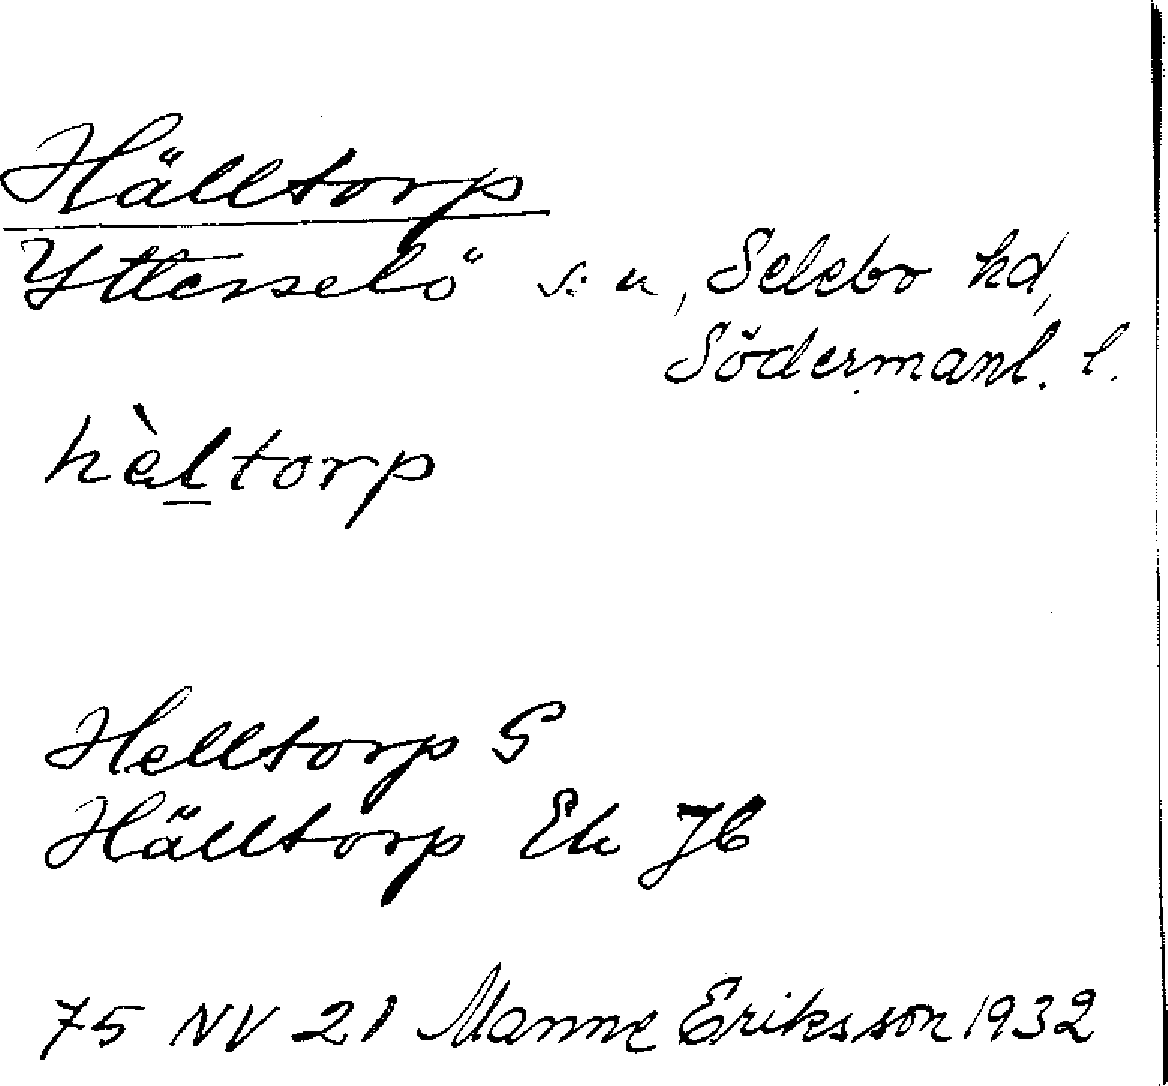 Hälltorp
Ytterselö s:n, Selebo hd,
Södermanl. l.
hèltorp
Helltorp G
Hälltorp Ek Jb
75 NV 21 Manne Eriksson 1932